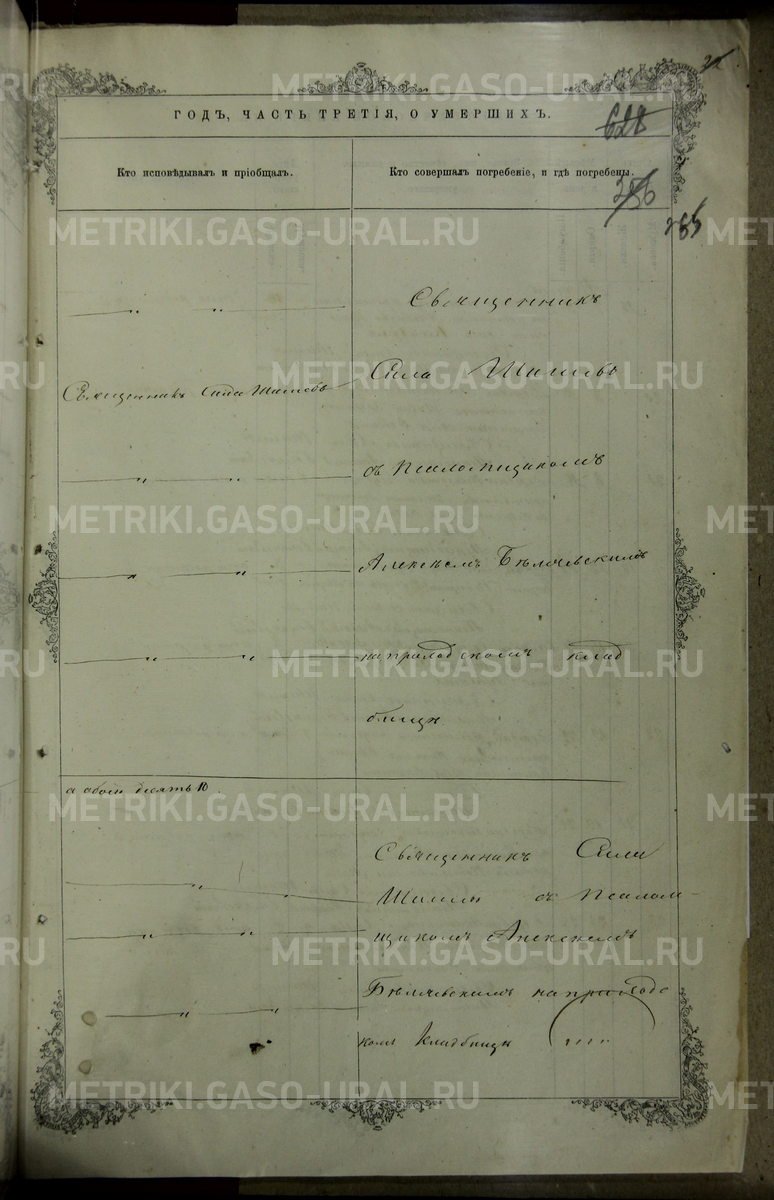 ГОДЪ, ЧАСТЬ ТРЕТІЯ, О УМЕРШИХЪ.
628
Кто исповѣдывалъ и пріобщалъ.
Кто совершалъ погребеніе, и гдѣ погребены.
256
255
Священникъ
Священникъ Сила Шишевъ
Сила Шишевъ
съ Псаломщикомъ
Алексѣемъ Бѣляевскимъ
на приходскомъ клад
бищѣ
а обоего десять 10
Священникъ Сила
съ Псалом-
щикомъ Алексѣемъ
Бѣляевскимъ на приходс
комъ Кладбищѣ
METRIKI.GASO-URAL.RU